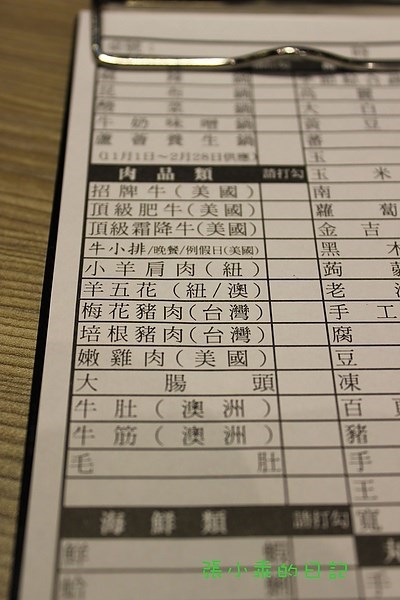 昆布鍋
酸菜鍋
牛奶味噌鍋
蘆薈養生鍋
(11月1日~2月28日供應)
肉品類 請打勾
招牌牛(美國)
頂級肥牛(美國)
頂級霜降牛(美國)
牛小排/晚餐/例假日(美國)
小羊肩肉(紐)
羊五花(紐/澳)
梅花豬肉(台灣)
培根豬肉(台灣)
嫩雞肉(美國)
大腸頭
牛肚(澳洲)
牛筋(澳洲)
毛肚
海鮮類 請打勾
鮮蝦
蛤
高麗
大白
黃豆
蕃
玉
玉米
南
蘿蔔
金吉
黑木
蒟蒻
老
手工
腐
豆
凍
百頁
豬
手
王
寬
張小乖的日記